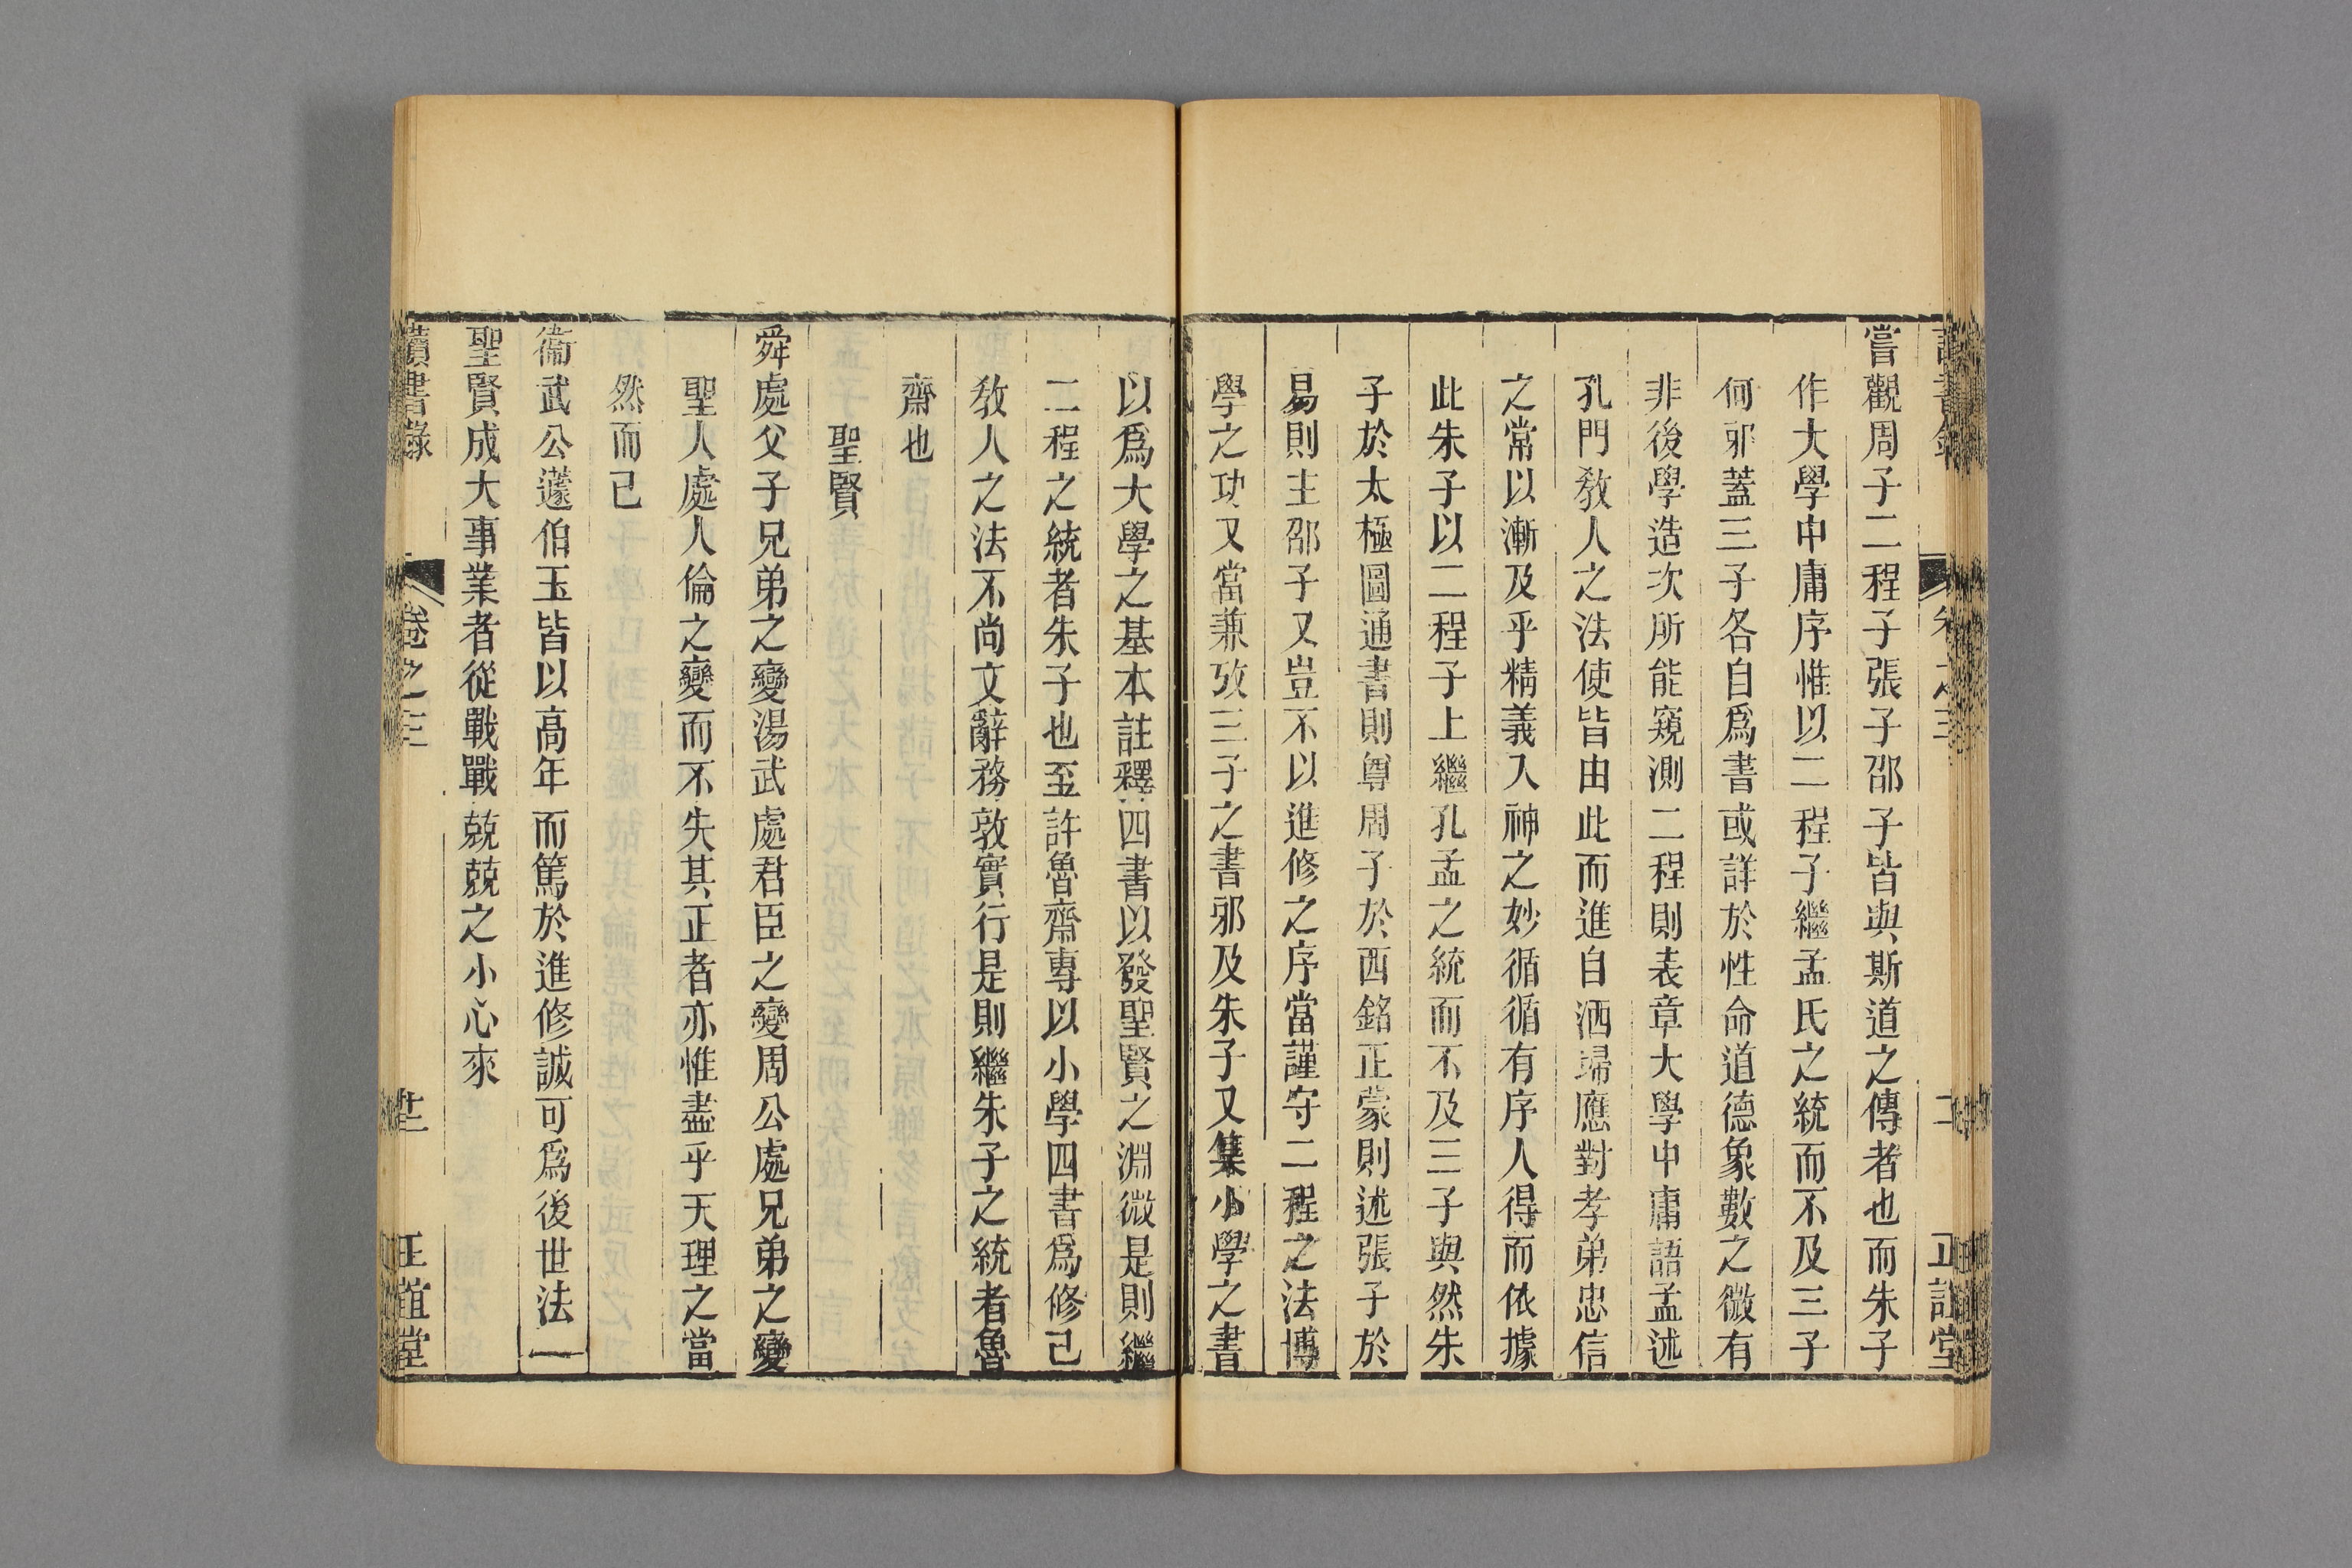 嘗觀周子二程子張子邵子皆與斯道之傳者也而朱子
作大學中庸序惟以二程子繼孟氏之統而不及三子
何邪蓋三子各自爲書或詳於性命道德象數之微有
非後學造次所能窺測二程則表章大學中庸語孟述
孔門教人之法使皆由此而進自洒埽應對孝弟忠信
之常以漸及乎精義入神之妙循循有序人得而依據
此朱子以二程子上繼孔孟之統而不及三子與然朱
子於太極圖通書則尊周子於西銘正蒙則述張子於
易則主邵子又豈不以進修之序當謹守二程之法博
學之功又當兼攷三子之書邪及朱子又集小學之書
以爲大學之基本註釋四書以發聖賢之淵微是則繼
二程之統者朱子也至許魯齋專以小學四書爲修己
教人之法不尚文辭務敦實行是則繼朱子之統者魯
齋也
聖賢
舜處父子兄弟之變湯武處君臣之變周公處兄弟之變
聖人處人倫之變而不失其正者亦惟盡乎天理之當
然而已
衞武公蘧伯玉皆以高年而篤於進修誠可爲後世法
聖賢成大事業者從戰戰兢兢之小心來
讀書錄
卷之三
廿
正誼堂